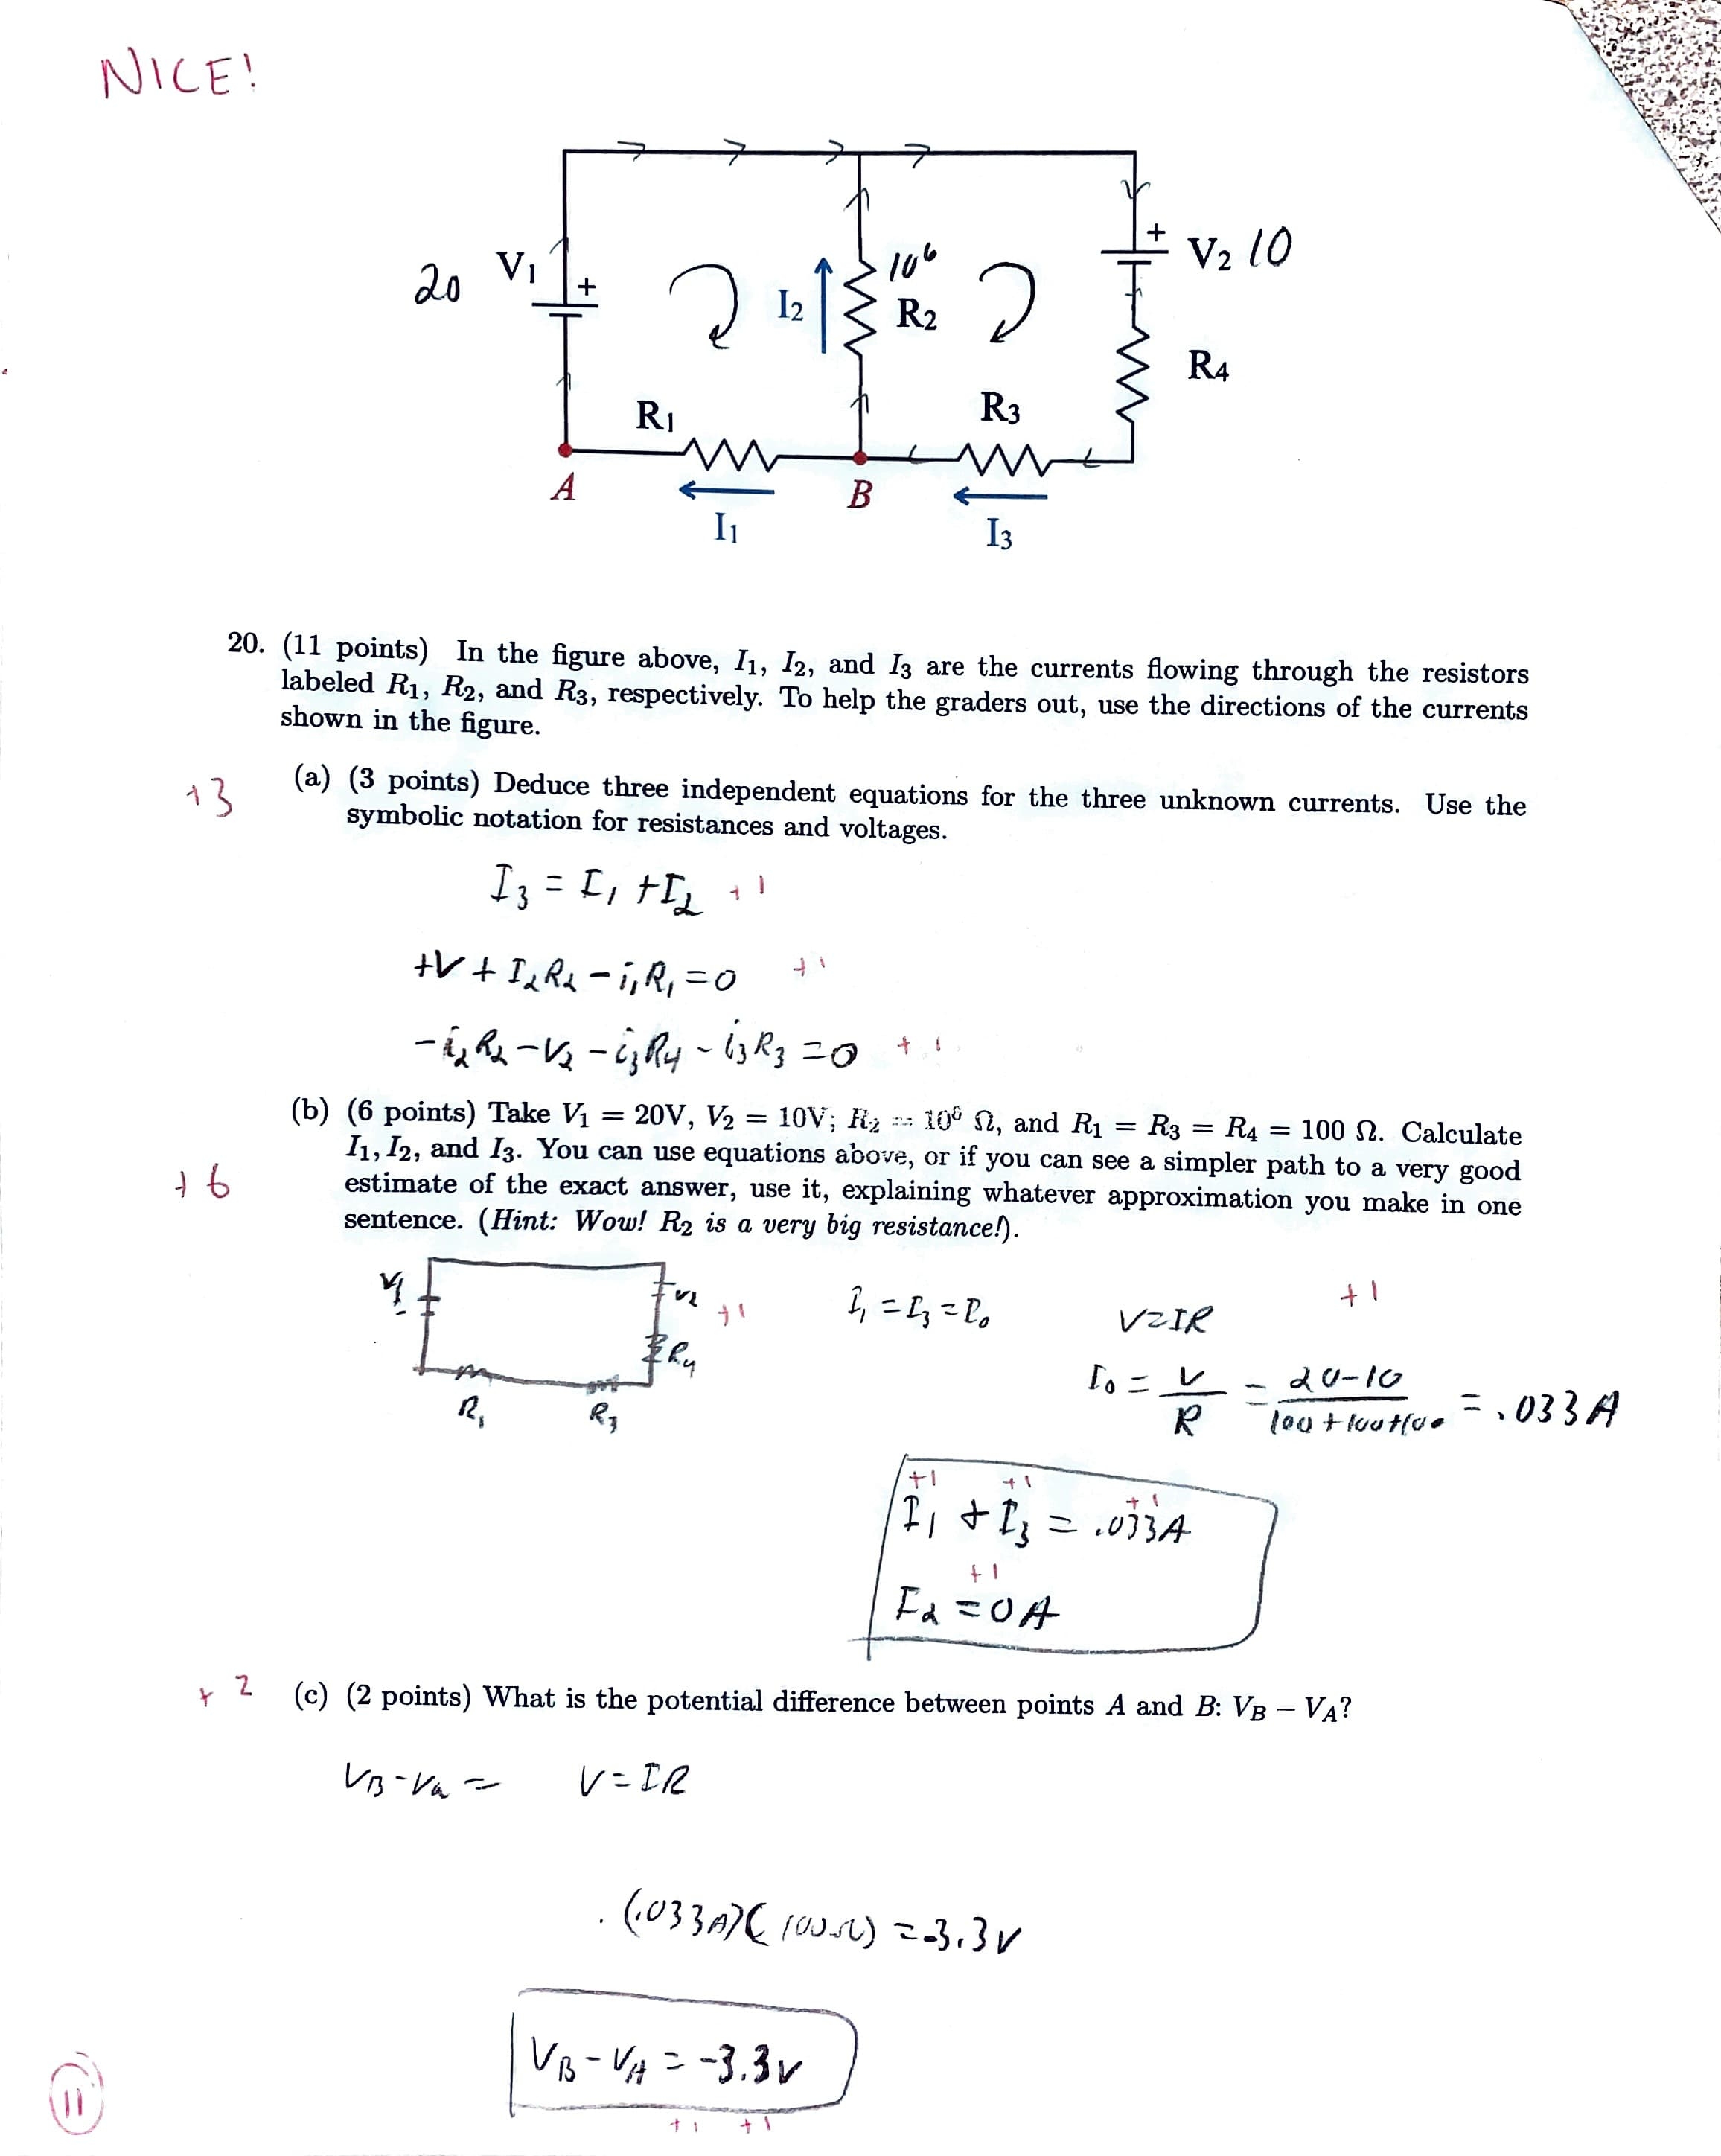 NICE!
20 V1 + I2 10⁶ R2 + V2 10
R4
R1 R3
A B
I1 I3
20. (11 points) In the figure above, I1, I2, and I3 are the currents flowing through the resistors
labeled R1, R2, and R3, respectively. To help the graders out, use the directions of the currents
shown in the figure.
+3
(a) (3 points) Deduce three independent equations for the three unknown currents. Use the
symbolic notation for resistances and voltages.
I3 = I1 + I2 +1
+V + I2R2 - i1R1 = 0 +1
-i2R2 - V2 - i3R4 - i3R3 = 0 +1
(b) (6 points) Take V1 = 20V, V2 = 10V; R2 = 10⁶ Ω, and R1 = R3 = R4 = 100 Ω. Calculate
I1, I2, and I3. You can use equations above, or if you can see a simpler path to a very good
+6
estimate of the exact answer, use it, explaining whatever approximation you make in one
sentence. (Hint: Wow! R2 is a very big resistance!).
V1 V2 +1 I1 = I3 = I0 V=IR +1
R4
R1 R3
I0 = V/R = 20-10/100+100+100 = .033A
+1 +1 +1
I1 + I3 = .033A
+1
I2 = 0A
+2
(c) (2 points) What is the potential difference between points A and B: VB − VA?
VB - Va = V = IR
(.033A)(100Ω) = -3.3V
VB - VA = -3.3V
+1 +1
11